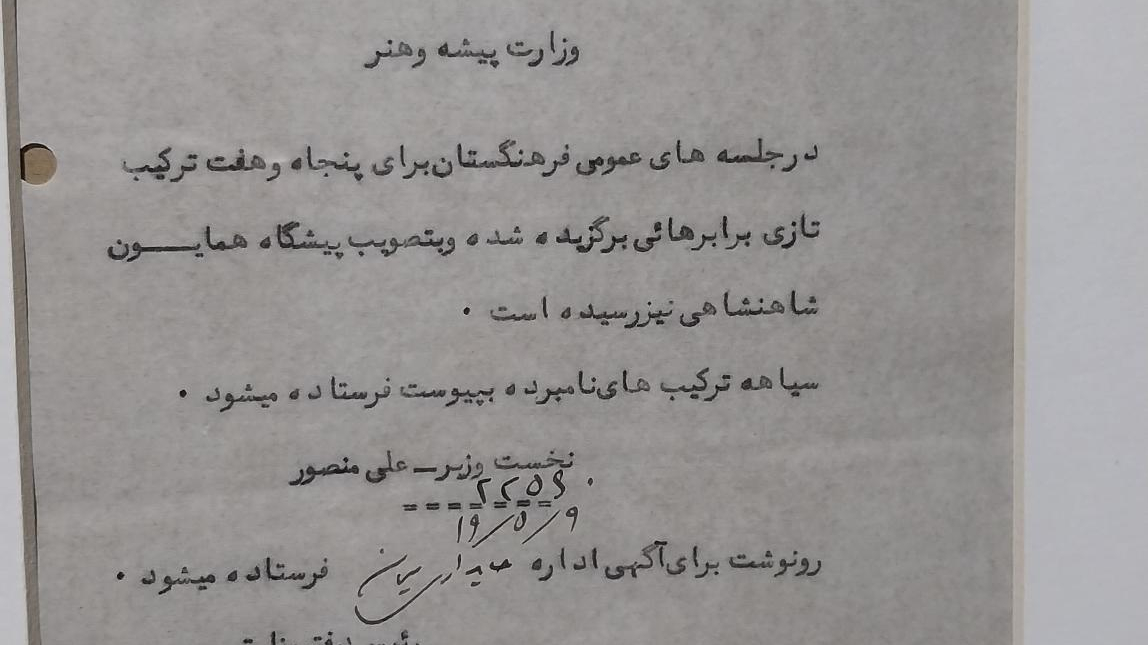 وزارت پیشه وهنر
درجلسه های عمومی فرهنگستان برای پنجاه وهفت ترکیب
تازی برابرهائی برگزیده شده وبتصویب پیشگاه همایـــون
شاهنشاهی نیزرسیده است ۰
سیاهه ترکیب های نامبرده بپیوست فرستاده میشود ۰
نخست وزیرــ علی منصور
۱۹/۵/۹
رونوشت برای آگهی اداره فرستاده میشود ۰